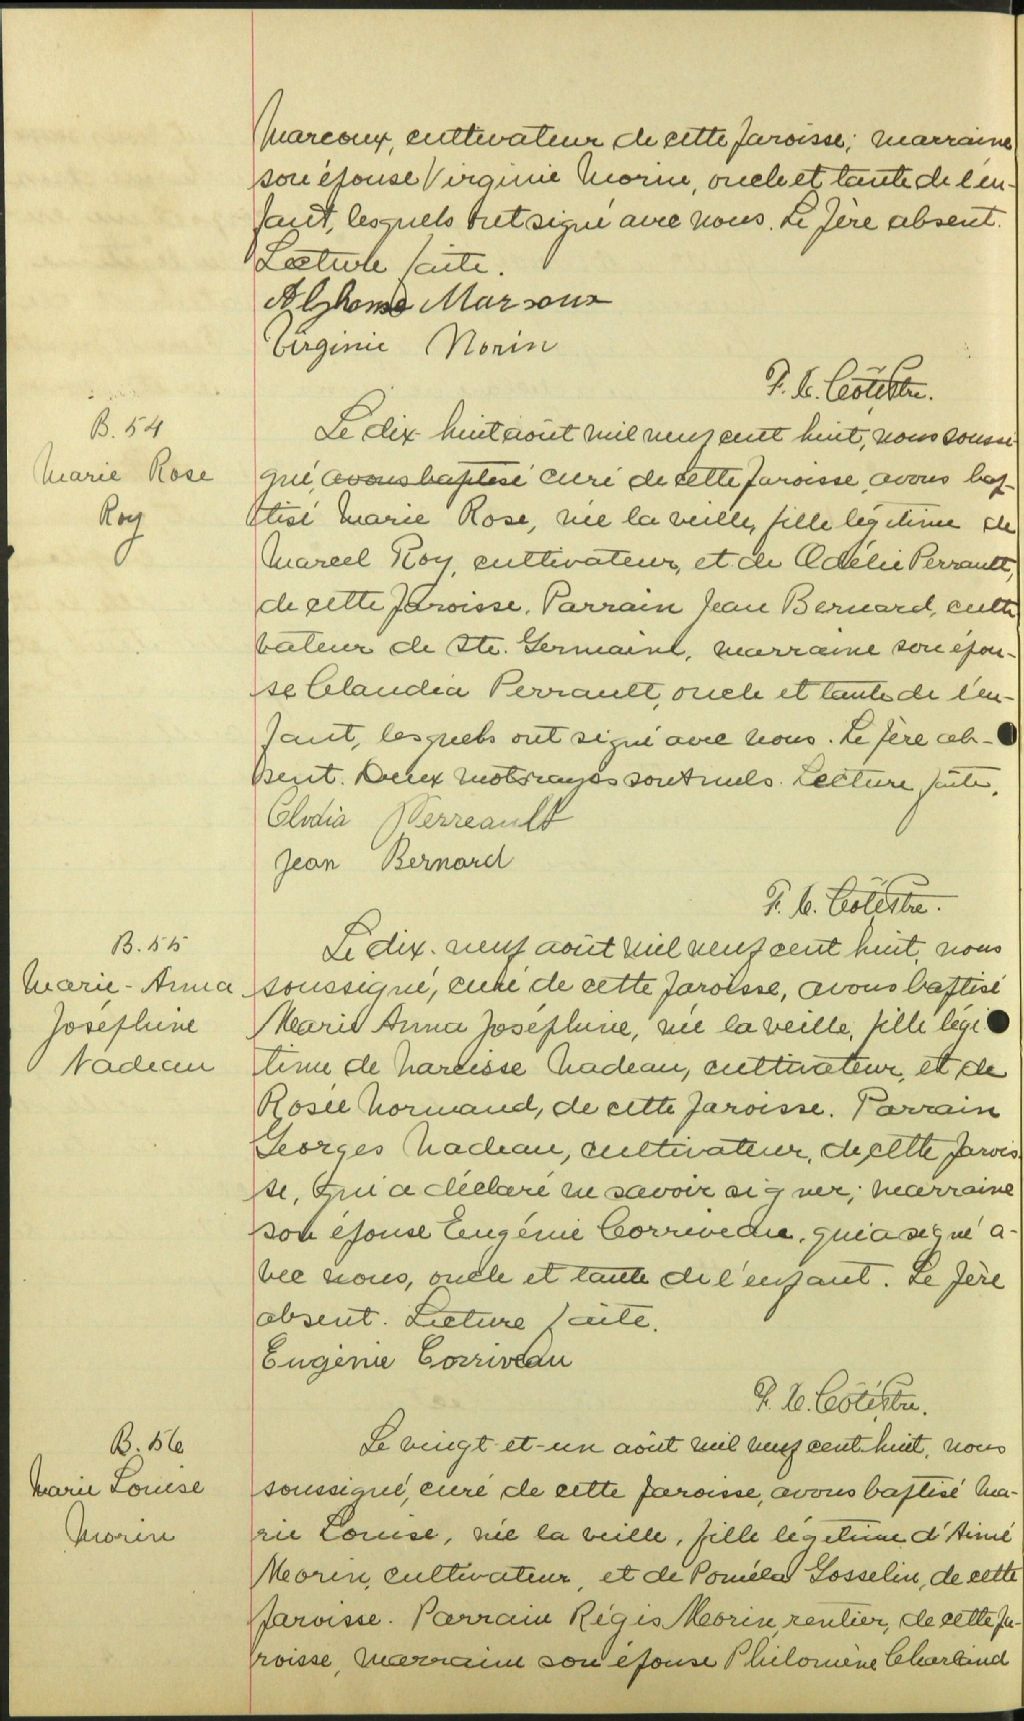 Marcoux, cultivateur de cette paroisse; marraine
son épouse Virginie Morin, oncle et tante de l'en-
fant, lesquels ont signé avec nous. Le père absent.
Lecture faite.
Alphonse Marcoux
Virginie Morin
F. X. Côté, Ptre.
B. 54
Marie Rose
Roy
Le dix-huit août mil neuf cent huit, nous soussi-
gné, avous baptisé curé de cette paroisse, avons bap-
tisé Marie Rose, née la veille, fille légitime de
Marcel Roy, cultivateur, et de Odélie Perrault,
de cette paroisse. Parrain Jean Bernard, culti
vateur de Ste. Germaine, marraine son épou-
se Claudia Perrault, oncle et tante de l'en-
fant, lesquels ont signé avec nous. Le père ab-
sent. Deux mots rayés sont nuls. Lecture faite.
Clodia Perreault
Jean Bernard
F. X. Côté, Ptre.
B. 55
Marie-Anna
Joséphine
Nadeau
Le dix-neuf août mil neuf cent huit, nous
soussigné, curé de cette paroisse, avons baptisé
Marie Anna Joséphine, née la veille, fille légi
time de Narcisse Nadeau, cultivateur, et de
Rosée Normand, de cette paroisse. Parrain
Georges Nadeau, cultivateur, de cette parois-
se, qui a déclaré ne savoir signer; marraine
son épouse Eugénie Corriveau, qui a signé a-
vec nous, oncle et tante de l'enfant. Le père
absent. Lecture faite.
Eugénie Corriveau
F. X. Côté, Ptre.
B. 56
Marie Louise
Morin
Le vingt-et-un août mil neuf cent huit, nous
soussigné, curé de cette paroisse, avons baptisé Ma-
rie Louise, née la veille, fille légitime d'Aimé
Morin, cultivateur, et de Poméla Gosselin, de cette
paroisse. Parrain Régis Morin, rentier, de cette pa-
roisse, marraine son épouse Philomène Charland